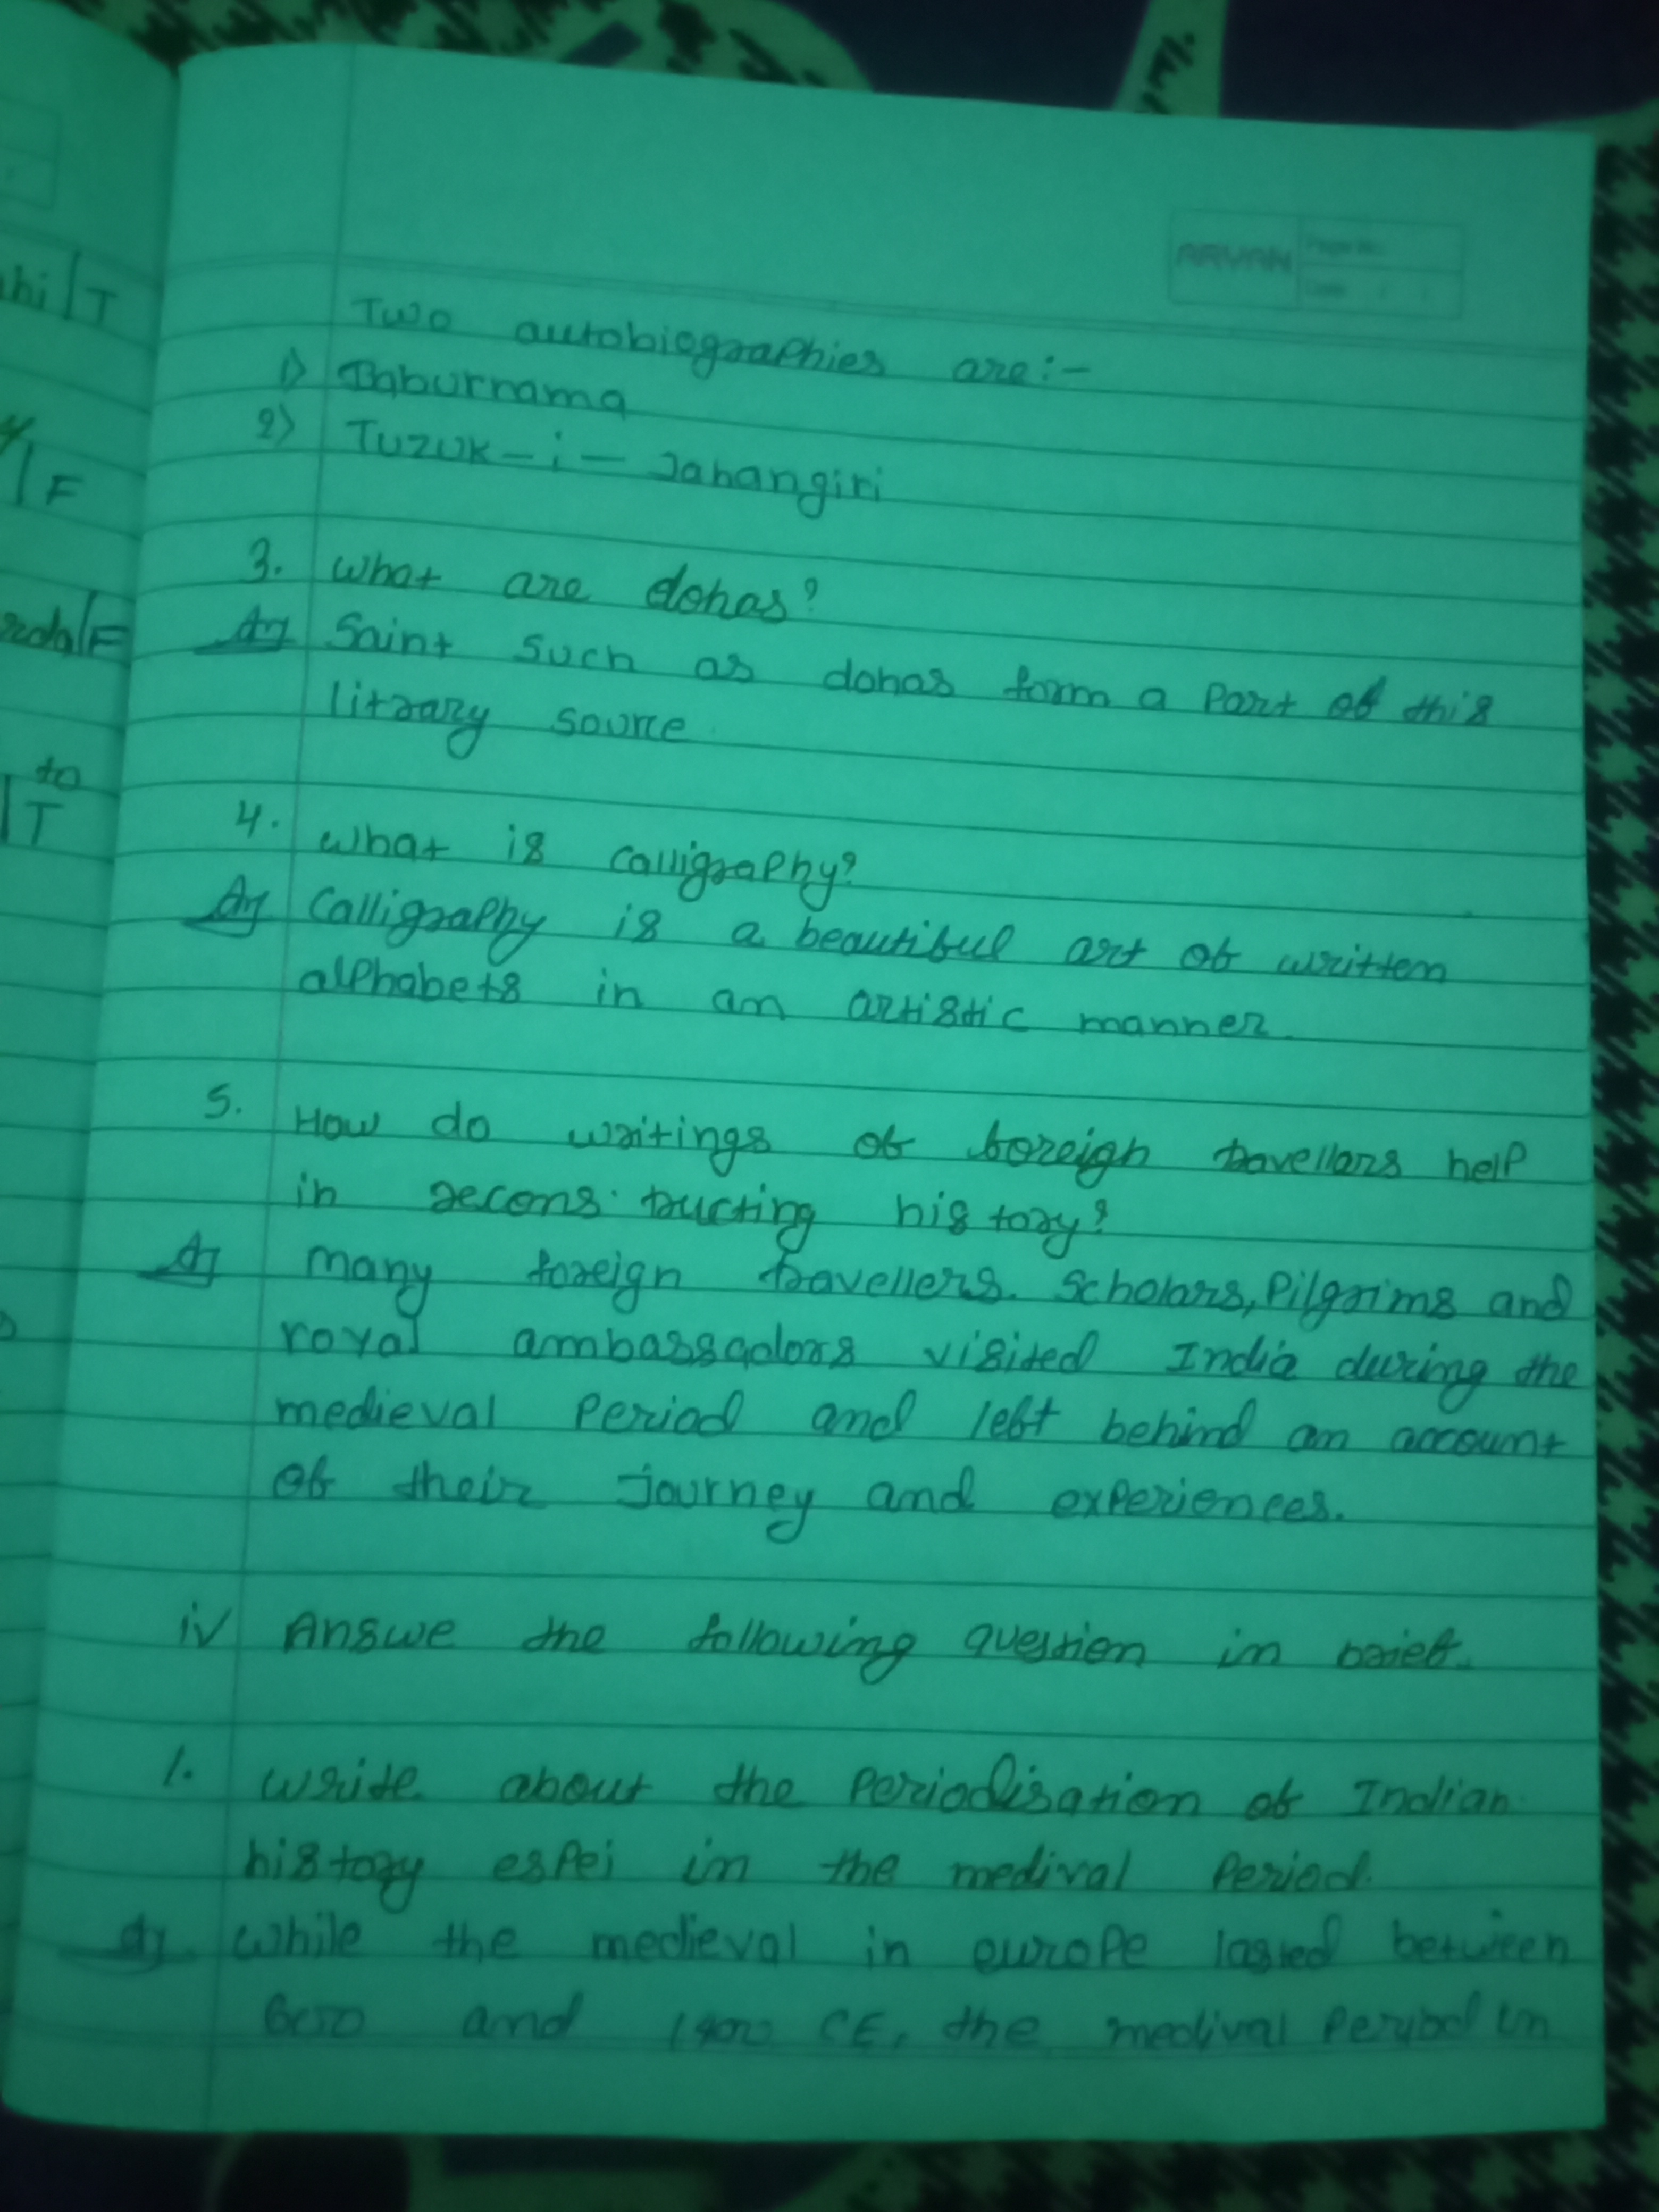 ARYAN
Two autobiographies are:-
1) Baburnama
2) Tuzuk-i-Jahangiri
3. What are dohas?
Saint such as dohas form a part of this
litrary source
4. What is calligraphy?
Calligraphy is a beautiful art of written
alphabets in an artistic manner
5. How do writings of foreigh travellars help
in recons tructing history?
Many foreign travellers. Scholars, pilgrims and
royal ambassadors visited India during the
medieval period and left behind an account
of their journey and experiences.
iv Answe the following question in brief.
1. write about the Periodisation of Indian
history espei in the medival period.
while the medieval in europe lasted between
and CE, the medival period in
hi/T
/F
/F
to
/T